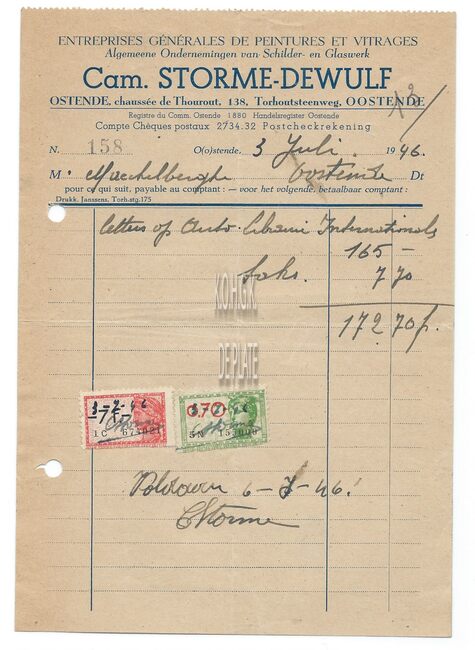 ENTREPRISES GÉNÉRALES DE PEINTURES ET VITRAGES
Algemeene Ondernemingen van Schilder- en Glaswerk
Cam. STORME-DEWULF
OSTENDE, chaussée de Thourout, 138, Torhoutsteenweg, OOSTENDE
Registre du Comm. Ostende 1880 Handelsregister Oostende
Compte Chèques postaux 2734.32 Postcheckrekening
N. 158 O(o)stende, 3 Juli 1946.
M. Oostende Dt
pour ce qui suit, payable au comptant : — voor het volgende, betaalbaar comptant :
Drukk. Janssens, Torh.stg.175
letters op Auto Internationale
165 —
7 70
172 70 f.
KOHGK
DE PLATE
3-7-46
1C
3-7-46
0,70
5N
Voldaan 6-7-46!
CStorme